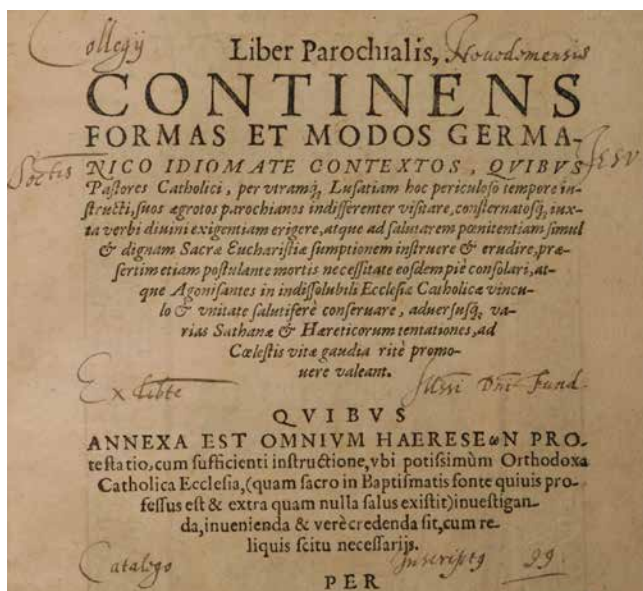 Collegij Liber Parochialis, Novodomensis
CONTINENS
FORMAS ET MODOS GERMA-
Soctis NICO IDIOMATE CONTEXTOS, QVIBVS IESV
Paſtores Catholici, per vtramq́; Luſatiam hoc periculoſo tempore in-
ſtructi, ſuos ægrotos parochianos indifferenter viſitare, conſternatosq́; iux-
ta verbi diuini exigentiam erigere, atque ad ſalutarem pœnitentiam ſimul
& dignam Sacræ Euchariſtiæ ſumptionem inſtruere & erudire, præ-
ſertim etiam poſtulante mortis neceſſitate eoſdem piè conſolari, at-
que Agoniſantes in indiſſolubili Eccleſiæ Catholicæ vincu-
lo & vnitate ſalutiferè conſeruare, aduerſusq́; va-
rias Sathanæ & Hæreticorum tentationes, ad
Cœleſtis vitæ gaudia ritè promo-
uere valeant.
Ex libte Illſſi Dni Fund.
QVIBVS
ANNEXA EST OMNIVM HAERESEωN PRO-
teſtatio, cum ſufficienti inſtructione, vbi potiſsimùm Orthodoxa
Catholica Eccleſia, (quam ſacro in Baptiſmatis fonte quiuis pro-
feſſus eſt & extra quam nulla ſalus exiſtit) inueſtigan-
da, inuenienda & verè credenda ſit, cum re-
liquis ſcitu neceſſarijs.
Catalogo Inscriptq 99
PER